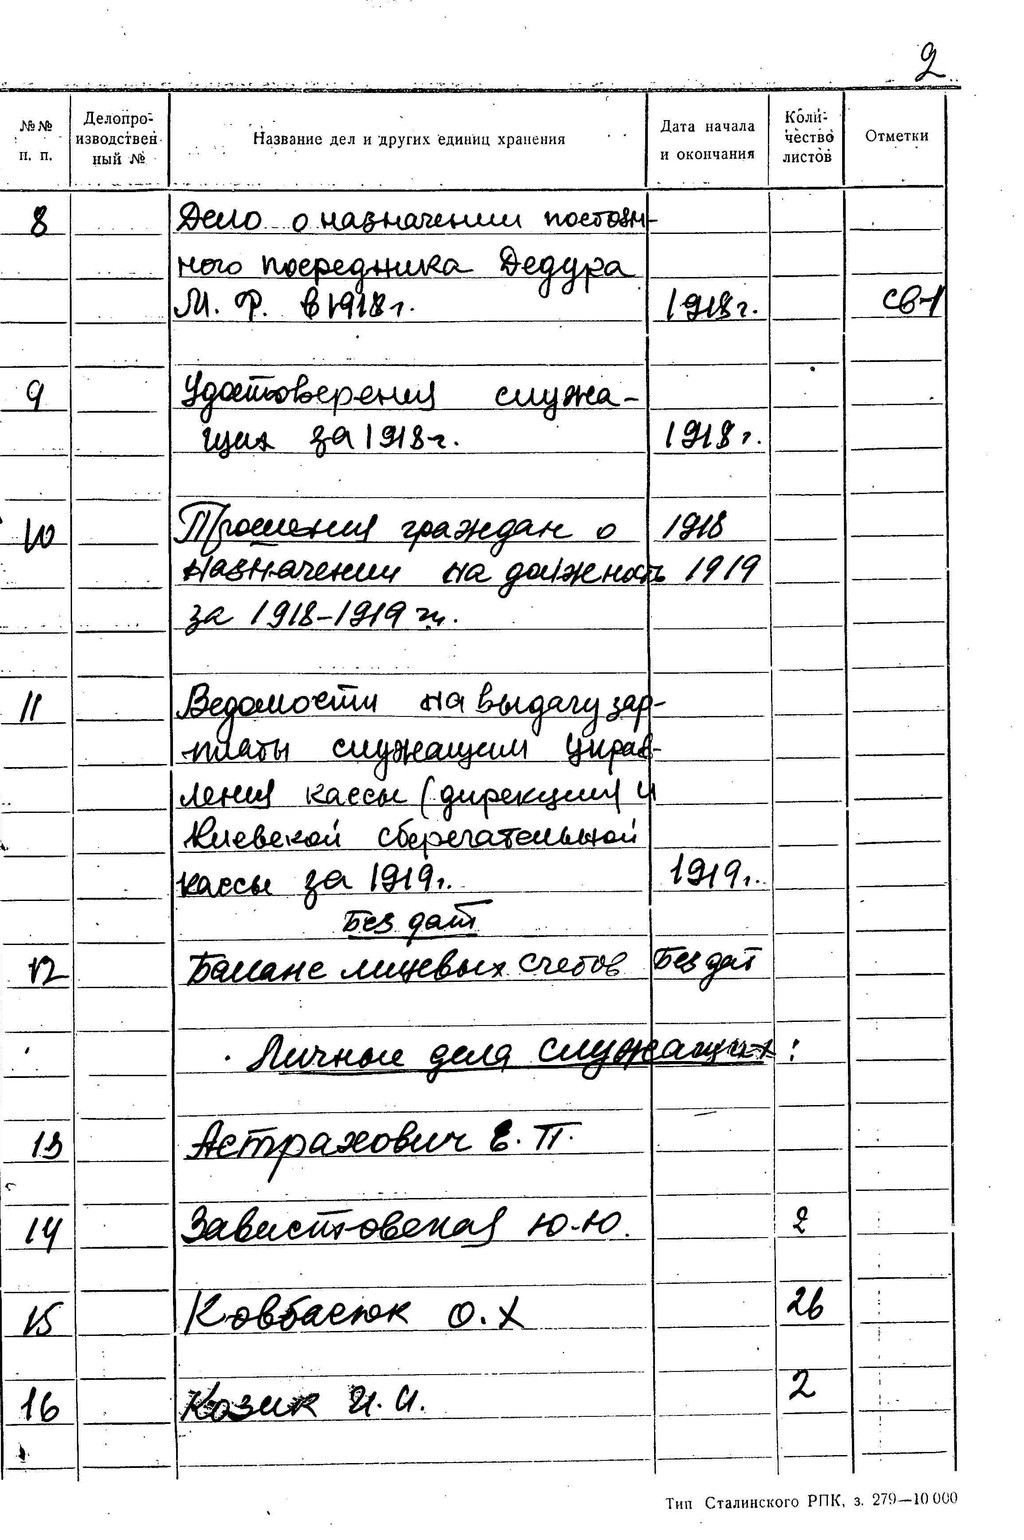 2
№№ п. п. Делопроизводственный № Название дел и других единиц хранения Дата начала и окончания Количество листов Отметки
8 Дело о назначении постоян-
ного посредника Дедура
М. Ф. в 1918 г. 1918 г. св-1
9 Удостоверения служа-
щих за 1918 г. 1918 г.
10 Прошения граждан о 1918
назначении на должность 1919
за 1918-1919 гг.
11 Ведомости на выдачу зар-
платы служащим управ-
ления кассы (дирекции) и
Киевской сберегательной
кассы за 1919 г. 1919 г.
Без дат
12 Баланс лицевых счетов Без дат
Личные дела служащих:
13 Астрахович Е. П.
14 Завистовская Ю. Ю. 2
15 Ковбасюк О. Х 26
16 Козик И. И. 2
Тип Сталинского РПК, з. 279—10 000